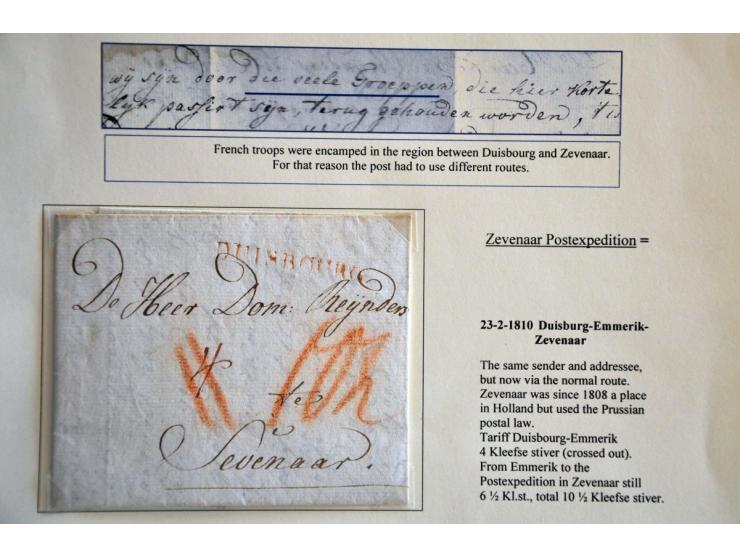 wij syn door die veele Troeppen, die hier Korte-
lyk passirt syn, terug gehouden worden, 't is
French troops were encamped in the region between Duisbourg and Zevenaar.
For that reason the post had to use different routes.
DUISBOURG
De Heer Dom: Reijnders
4 10½
te
Sevenaar.
Zevenaar Postexpedition =
23-2-1810 Duisburg-Emmerik-
Zevenaar
The same sender and addressee,
but now via the normal route.
Zevenaar was since 1808 a place
in Holland but used the Prussian
postal law.
Tariff Duisbourg-Emmerik
4 Kleefse stiver (crossed out).
From Emmerik to the
Postexpedition in Zevenaar still
6 ½ Kl.st., total 10 ½ Kleefse stiver.